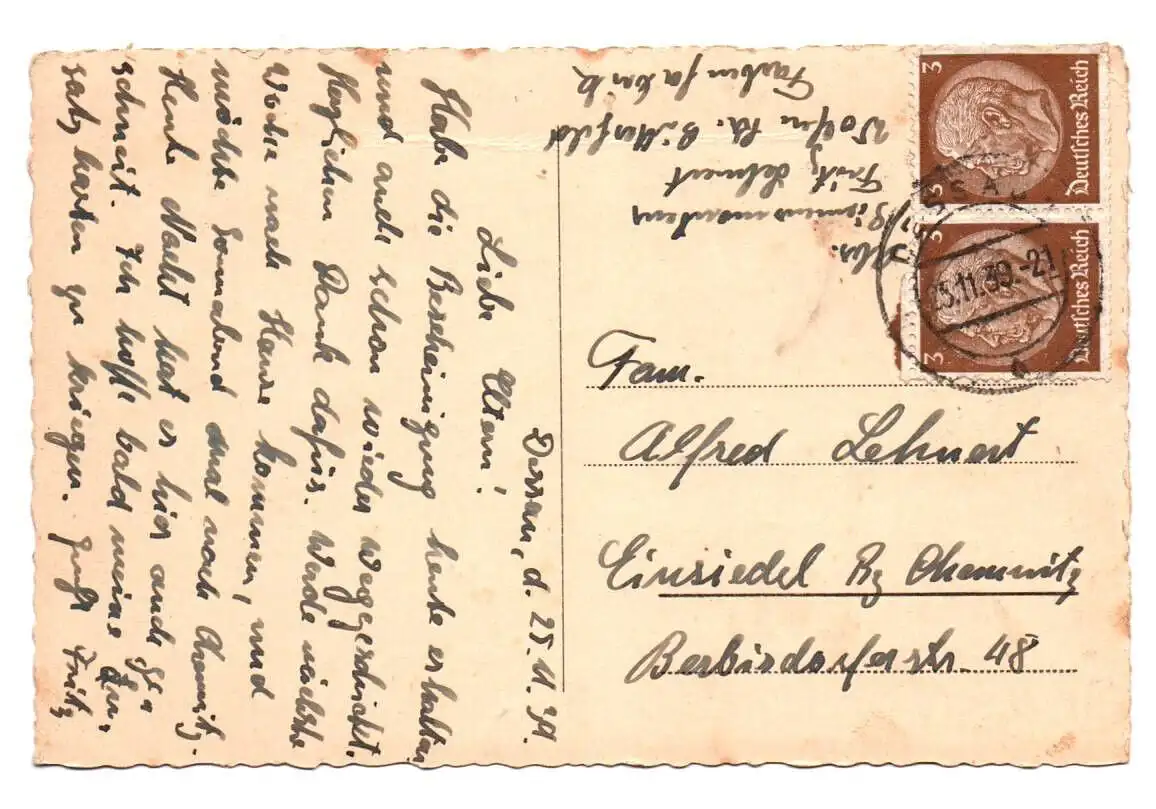 Dessau, d. 25.11.39.
Liebe Eltern!
Habe die Bescheinigung heute erhalten
und auch schon wieder weggeschickt.
Herzlichen Dank dafür. Werde nächste
Woche nach Hause kommen, und
möchte Sonnabend mal nach Chemnitz.
Heute Nacht hat es hier auch
schneit. Ich hoffe bald meine Zu-
satzkarten zu kriegen. Gruß Fritz
Abs.
Fritz Lehnert
Wolfen Kr. Bitterfeld
Farbenfabrik
3 3
Deutsches Reich
3 3
Deutsches Reich
DESSAU
25.11.39.-21
Fam.
Alfred Lehnert
Einsiedel Bz Chemnitz
Berbisdorferstr. 48